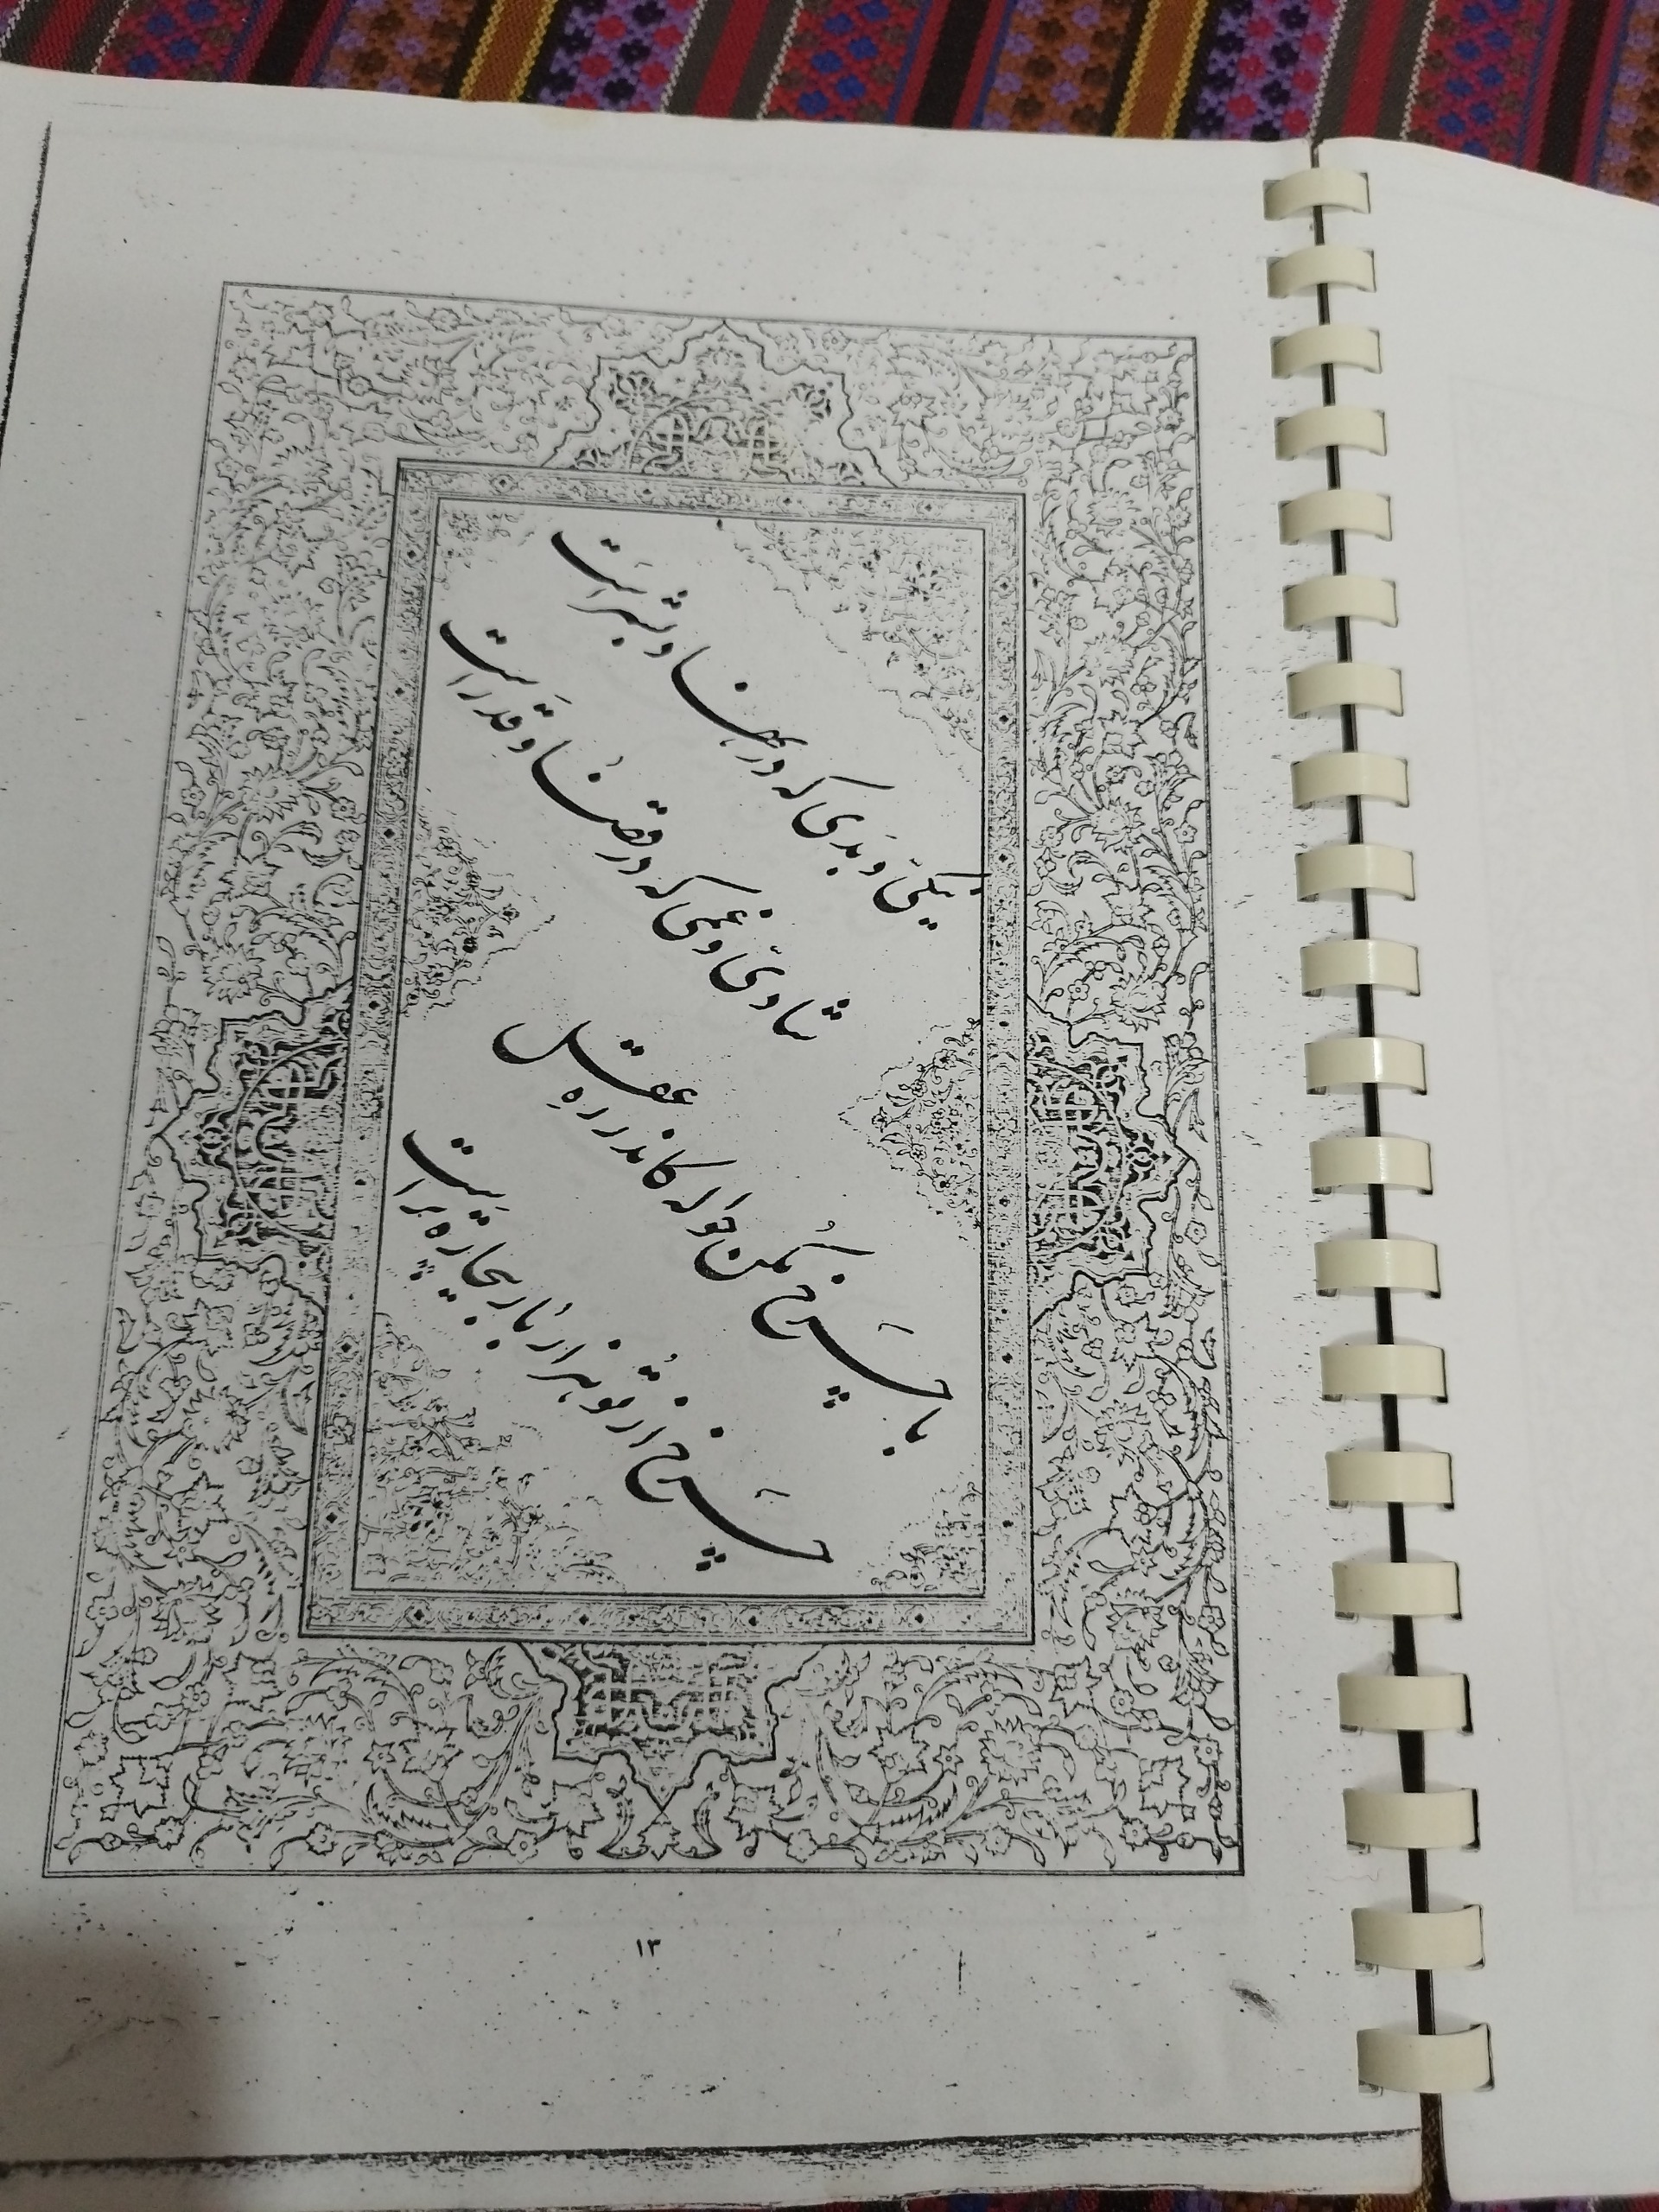 نیکی و بدی که در نهاد بشر است
شادی و غمی که در قضا و قدر است
با چرخ مکن حواله کاندر ره عقل
چرخ از تو هزار بار بیچاره‌تر است
۱۳